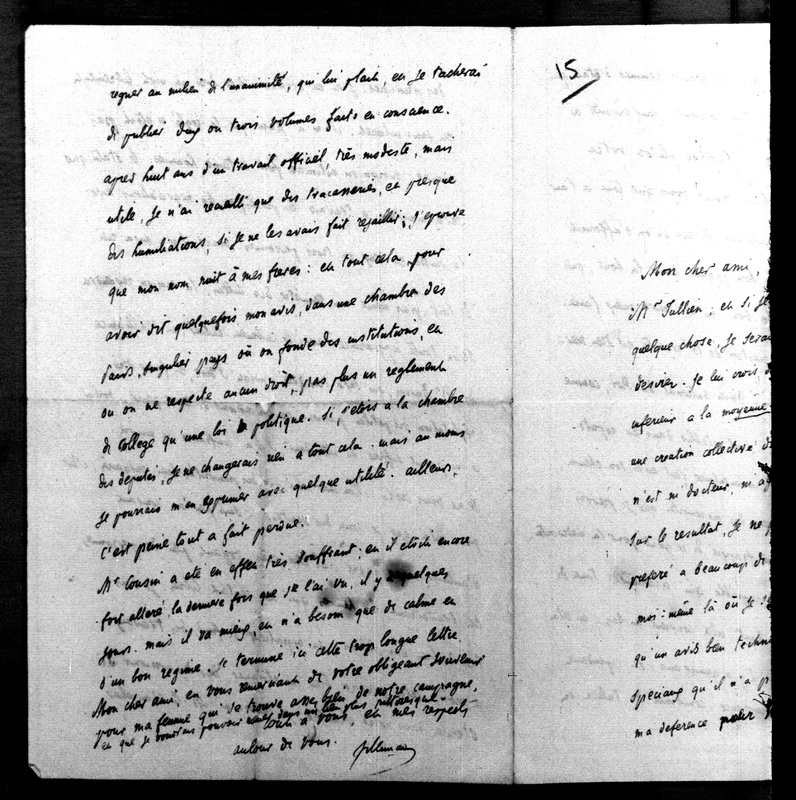 regner au milieu de l'unanimité, qui lui plait, et je tacherai
de publier deux ou trois volumes faits en conscience.
apres huit ans d'un travail officiel, très modeste, mais
utile, je n'ai recueilli que des tracasseries, et presque
des humiliations, si je ne les avais fait rejaillir; j'eprouve
que mon nom nuit à mes freres: et tout cela pour
avoir dit quelquefois mon avis, dans une chambre des
Pairs, singulier pays où on fonde des institutions, et
ou on ne respecte aucun droit, pas plus un reglement
de College qu'une loi politique. Si j'etois a la chambre
des deputés, je ne changerais rien a tout cela. mais au moins
je pourrais m'en exprimer avec quelque utilité. ailleurs,
c'est peine tout a fait perdue.
Mr Cousin a eté en effet très souffrant; et il etoit encore
fort alteré la derniere fois que je l'ai vu, il y a quelques
jours. mais il va mieux, et n'a besoin que de calme et
d'un bon regime. Je termine ici cette trop longue lettre
Mon cher ami, en vous remerciant de votre obligeant souvenir
pour ma femme qui se trouve assez bien de notre campagne,
et que je voudrais pouvoir mener dans un lieu plus pittoresque.
tout à vous, et mes respects
autour de vous.
15
Mon cher ami,
Mr Jullien; et si je
quelque chose, je serai
desirer. Je lui crois
inferieur a la moyenne
une creation collective
n'est ni docteur, ni
Sur le resultat, je ne
preferé a beaucoup de
moi-même là où je
qu'un avis bien
speciaux qu'il n'a
ma deference pour